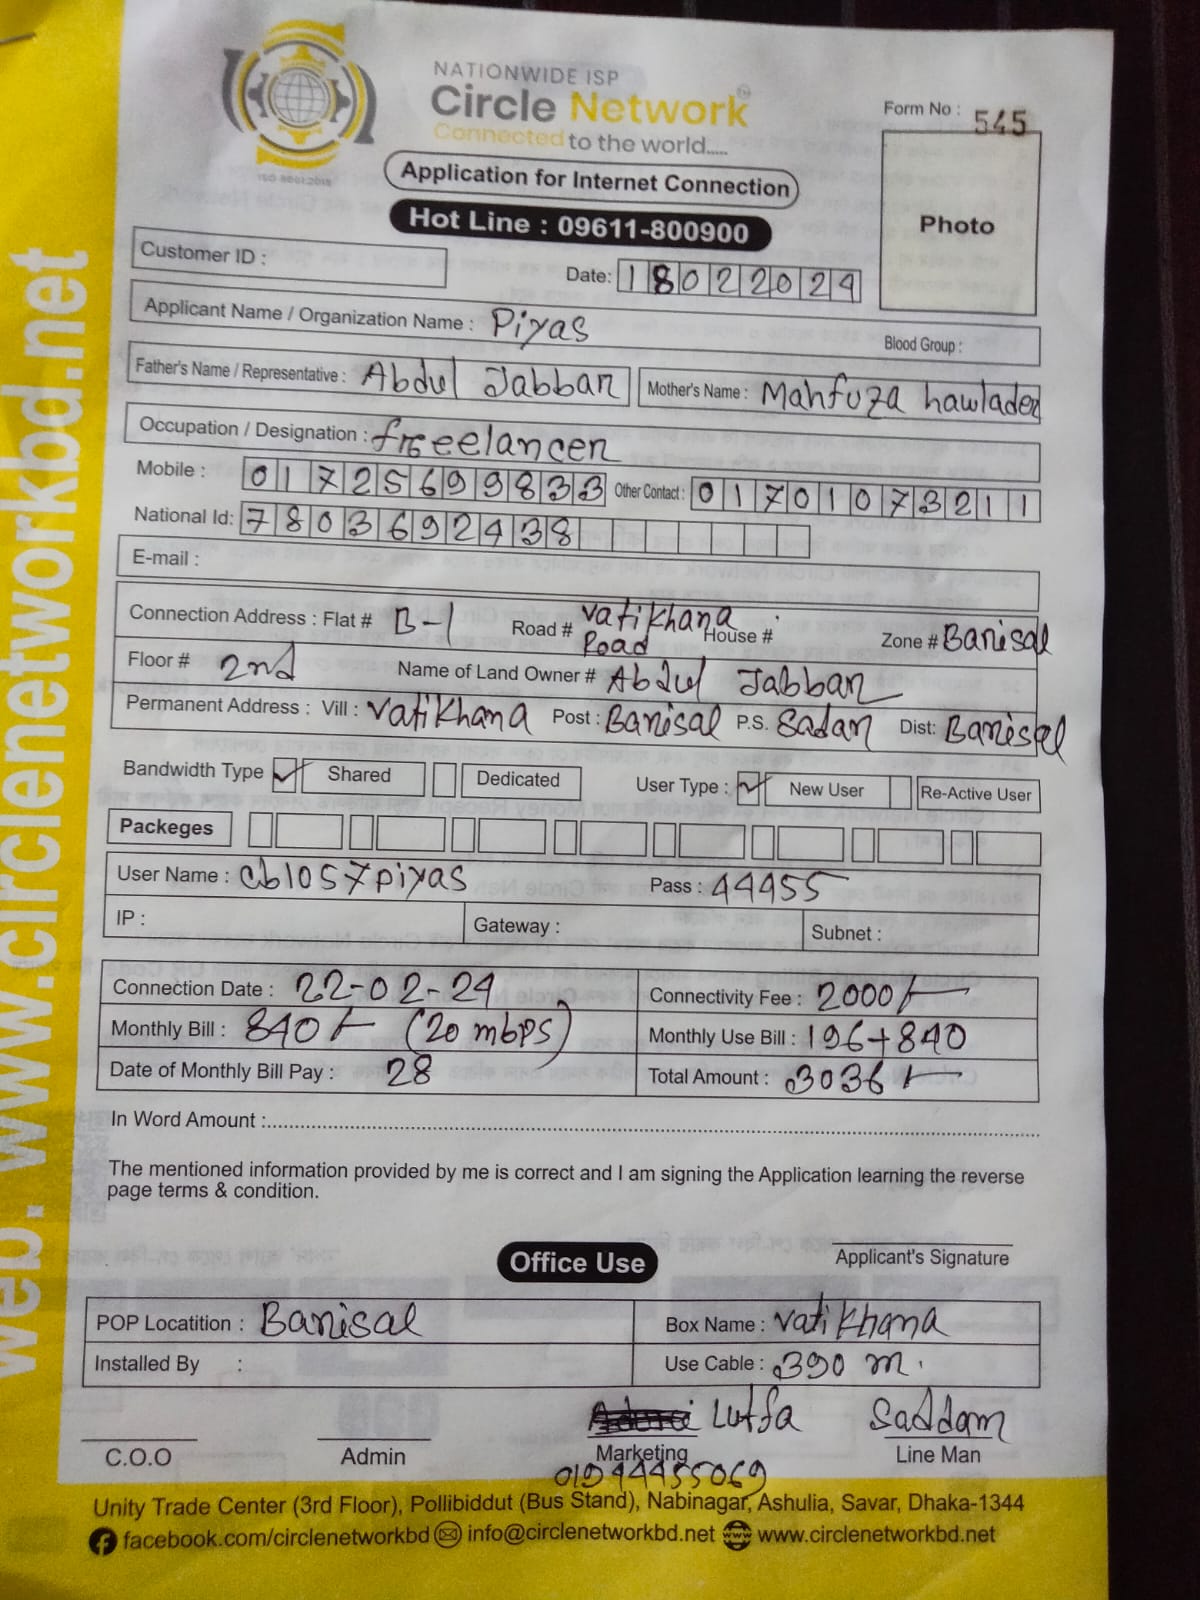 NATIONWIDE ISP
Circle Network
Connected to the world.....
ISO 9001:2015
Form No : 545
Application for Internet Connection
Hot Line : 09611-800900
Photo
Customer ID :
Date: 18022024
Applicant Name / Organization Name : Piyas
Blood Group :
Father's Name / Representative : Abdul Jabbar
Mother's Name : Mahfuza hawlader
Occupation / Designation : freelancer
Mobile : 01725699833 Other Contact : 01701073211
National Id: 7803692438
E-mail :
Connection Address : Flat # B-1 Road # Vatikhana Road House # Zone # Barisal
Floor # 2nd Name of Land Owner # Abdul Jabbar
Permanent Address : Vill : Vatikhana Post : Barisal P.S. Sadar Dist: Barisal
Bandwidth Type Shared Dedicated User Type : New User Re-Active User
Packeges
User Name : cb1057piyas Pass : 44455
IP : Gateway : Subnet :
Connection Date : 22-02-24 Connectivity Fee : 2000/-
Monthly Bill : 840/- (20 mbps) Monthly Use Bill : 196+840
Date of Monthly Bill Pay : 28 Total Amount : 3036/-
In Word Amount :
The mentioned information provided by me is correct and I am signing the Application learning the reverse
page terms & condition.
Applicant's Signature
Office Use
POP Locatition : Barisal Box Name : Vatikhana
Installed By : Use Cable : 390 m.
Lutfa Saddam
C.O.O Admin Marketing Line Man
01944455069
Unity Trade Center (3rd Floor), Pollibiddut (Bus Stand), Nabinagar, Ashulia, Savar, Dhaka-1344
facebook.com/circlenetworkbd info@circlenetworkbd.net www.circlenetworkbd.net
web: www.circlenetworkbd.net